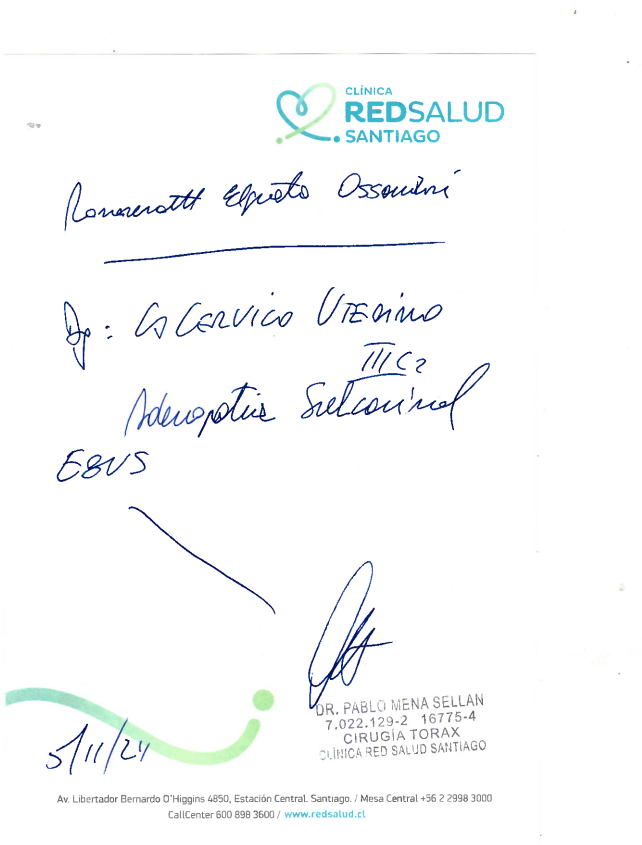 CLÍNICA
REDSALUD
SANTIAGO
Dg: Ca CERVICO UTERINO
III C2
Adenopatia Subcarinal
EBUS
DR. PABLO MENA SELLAN
7.022.129-2 16775-4
CIRUGÍA TORAX
CLÍNICA RED SALUD SANTIAGO
5/11/24
Av. Libertador Bernardo O'Higgins 4850, Estación Central. Santiago. / Mesa Central +56 2 2998 3000
CallCenter 600 898 3600 / www.redsalud.cl